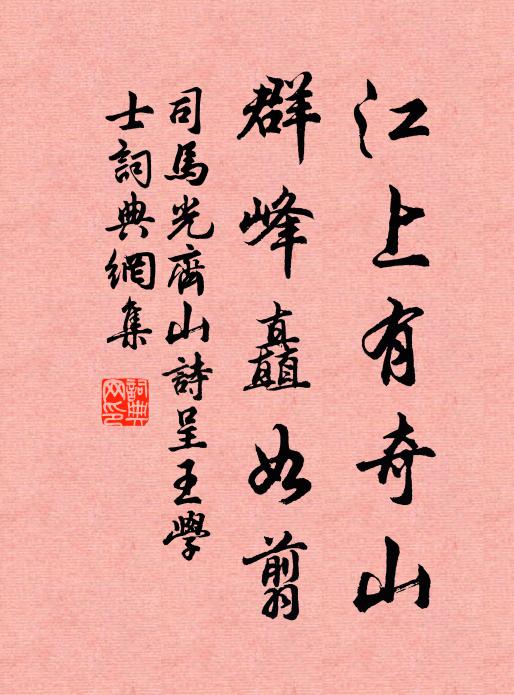 江上有奇山
群峰矗如翦
司馬光齊山詩呈王學
士詞典網集
詞典
网印